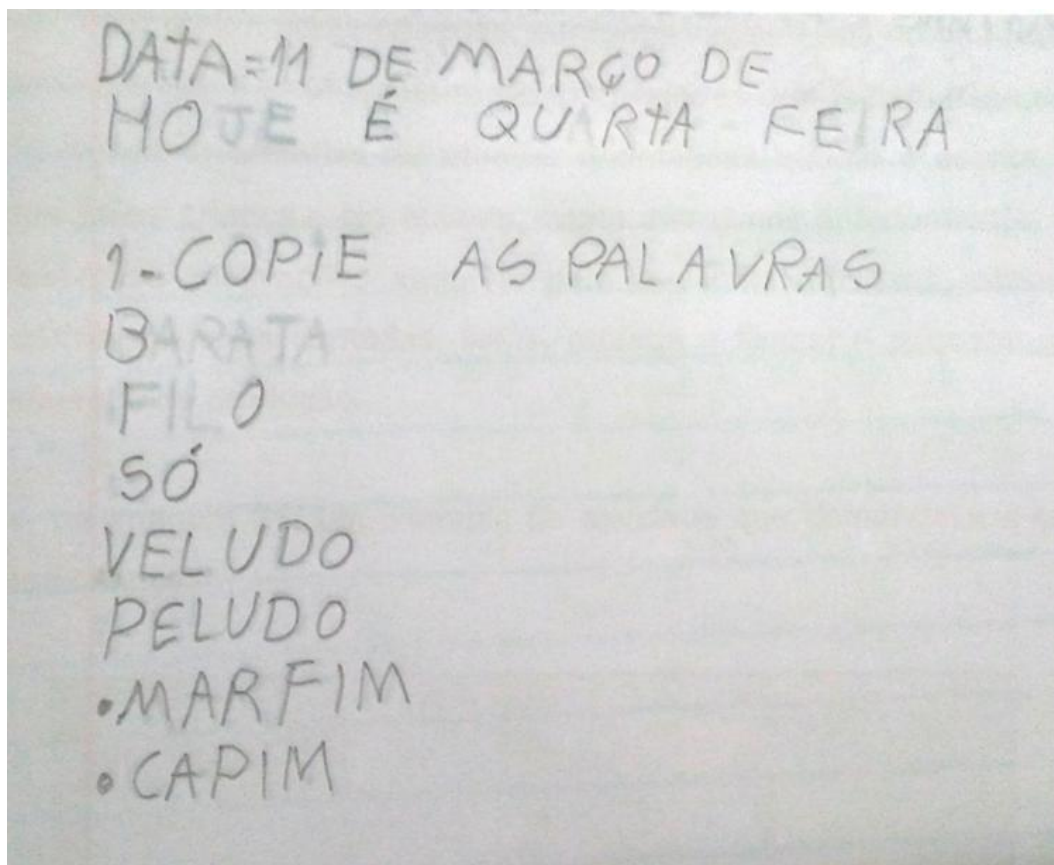 DATA=11 DE MARÇO DE
HOJE É QUARTA FEIRA
1-COPIE AS PALAVRAS
BARATA
FILO
SÓ
VELUDO
PELUDO
•MARFIM
•CAPIM